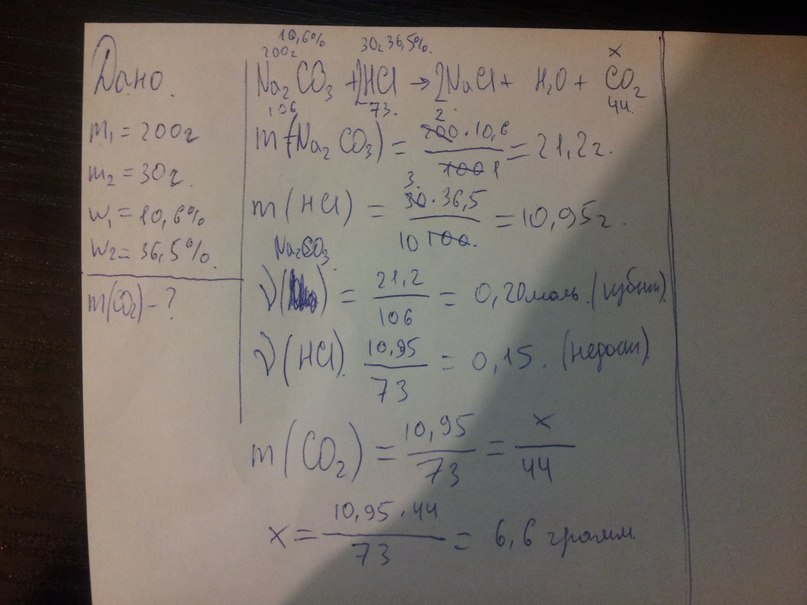 Дано.
m₁ = 200г
m₂ = 30г.
w₁ = 10,6%
w₂ = 36,5%.
m(CO₂) - ?
10,6% 30г 36,5%.
200г x
Na₂CO₃ + 2HCl → 2NaCl + H₂O + CO₂
106 73. 44
2.
m(Na₂CO₃) = 200 · 10,6 / 100 1 = 21,2г.
3.
m(HCl) = 30 · 36,5 / 10 100. = 10,95г.
Na₂CO₃
ν( ) = 21,2 / 106 = 0,20 моль.
ν(HCl). 10,95 / 73 = 0,15. (недост)
m(CO₂) = 10,95 / 73 = x / 44
x = 10,95 · 44 / 73 = 6,6 грамм.